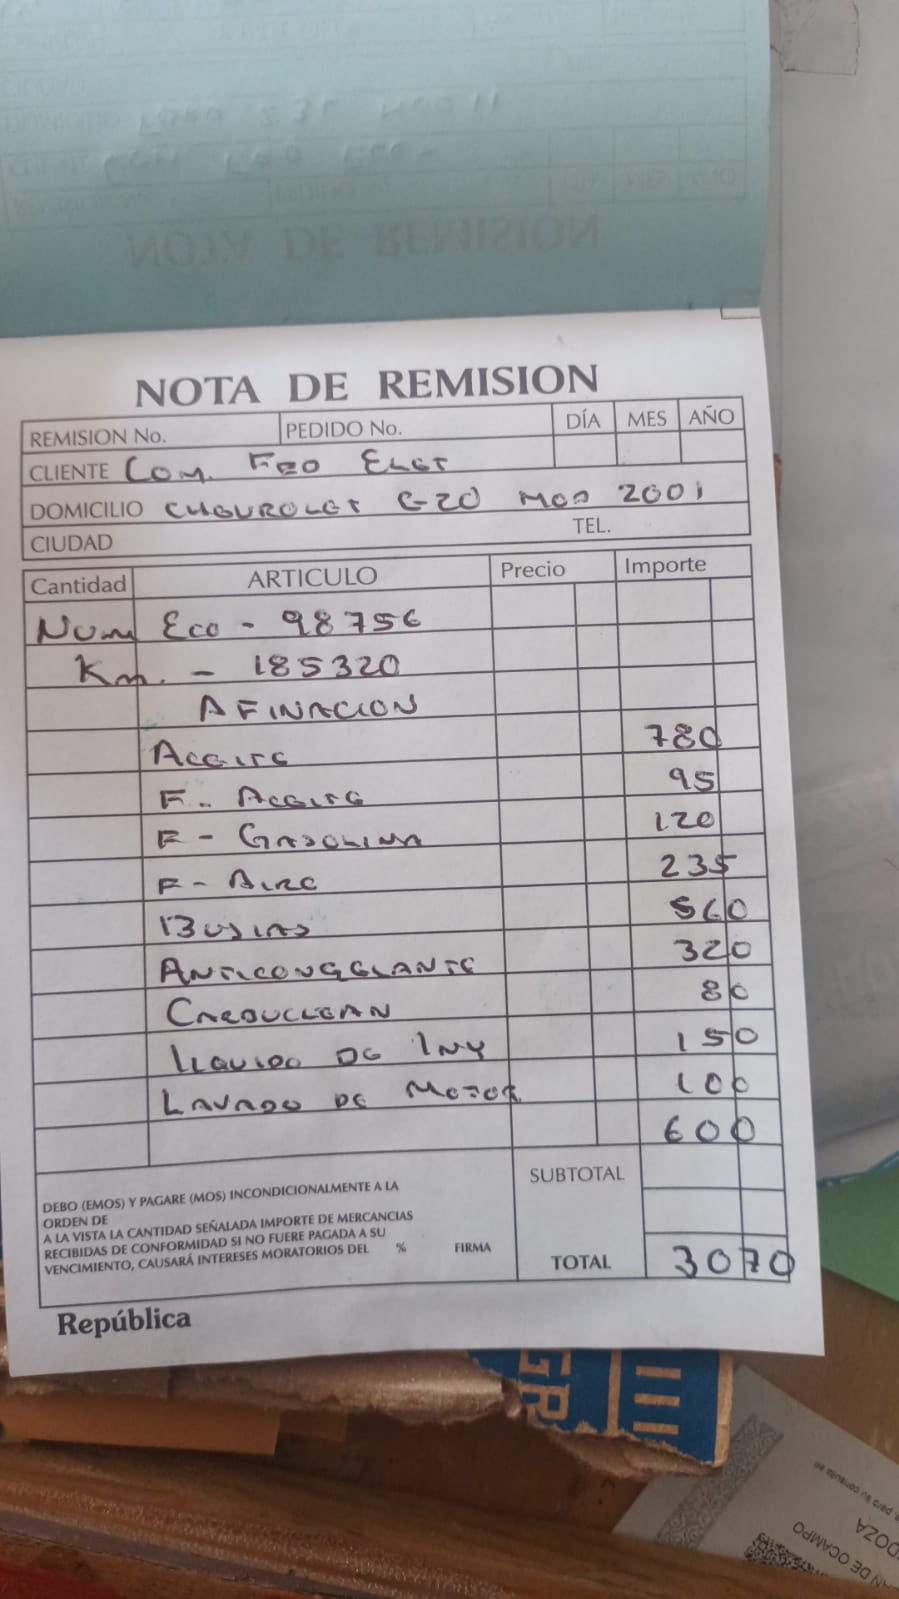 NOTA DE REMISION
REMISION No. PEDIDO No. DÍA MES AÑO
CLIENTE Com. FEO ELET
DOMICILIO CHEVROLET G-20 MOD 2001
CIUDAD TEL.
Cantidad ARTICULO Precio Importe
Num Eco - 98756
Km. - 185320
AFINACION
ACEITE 780
F- ACEITE 95
F- GASOLINA 120
F- AIRE 235
BUJIAS 560
ANTICONGELANTE 320
CARBUCLEAN 80
LIQUIDO DE INY 150
LAVADO DE MOTOR 100
600
SUBTOTAL
DEBO (EMOS) Y PAGARE (MOS) INCONDICIONALMENTE A LA
ORDEN DE
A LA VISTA LA CANTIDAD SEÑALADA IMPORTE DE MERCANCIAS
RECIBIDAS DE CONFORMIDAD SI NO FUERE PAGADA A SU
VENCIMIENTO, CAUSARÁ INTERESES MORATORIOS DEL % FIRMA
TOTAL 3070
República
GR
AN DE OCAMPO